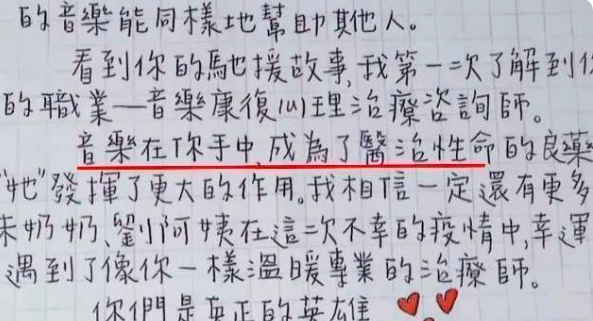 的音樂能同樣地幫助其他人。
看到你的馳援故事,我第一次了解到你
的職業—音樂康復心理治療咨詢師。
音樂在你手中,成為了醫治性命的良藥
"她"發揮了更大的作用。我相信一定還有更多
朱奶奶、劉阿姨在這次不幸的疫情中,幸運
遇到了像你一樣溫暖專業的治療師。
你們是真正的英雄